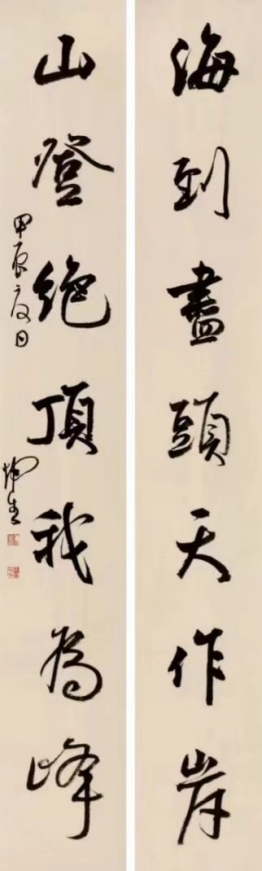 海到盡頭天作岸
山登絶頂我為峰
甲辰夏日